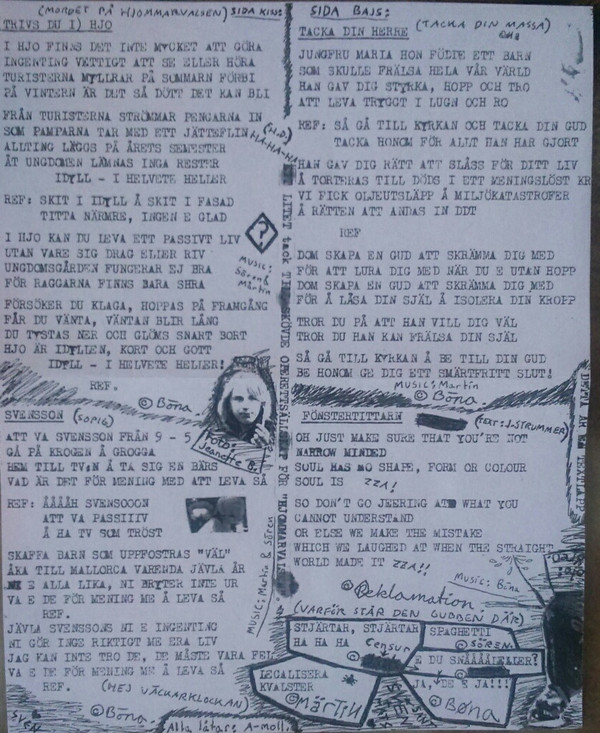 (MORGET PÅ HJOMMARVALSEN) SIDA KISS:
TRIVS DU I) HJO
I HJO FINNS DET INTE MYCKET ATT GÖRA
INGENTING VETTIGT ATT SE ELLER HÖRA
TURISTERNA MYLLRAR PÅ SOMMARN FÖRBI
PÅ VINTERN ÄR DET SÅ DÖTT DET KAN BLI
FRÅN TURISTERNA STRÖMMAR PENGARNA IN
SOM PAMPARNA TAR MED ETT JÄTTEFLIN
HA-HA-HA
ALLTING LÄGGS PÅ ÅRETS SEMESTER
ÅT UNGDOMEN LÄMNAS INGA RESTER
IDYLL - I HELVETE HELLER
REF: SKIT I IDYLL Å SKIT I FASAD
TITTA NÄRMRE, INGEN E GLAD
I HJO KAN DU LEVA ETT PASSIVT LIV
UTAN VARE SIG DRAG ELLER RIV
UNGDOMSGÅRDEN FUNGERAR EJ BRA
FÖR RAGGARNA FINNS BARA SHRA
?
MUSIC:
Sören &
Martin
FÖRSÖKER DU KLAGA, HOPPAS PÅ FRAMGÅNG
FÅR DU VÄNTA, VÄNTAN BLIR LÅNG
DU TYSTAS NER OCH GLÖMS SNART BORT
HJO ÄR IDYLLEN, KORT OCH GOTT
IDYLL - I HELVETE HELLER!
REF.
© Böna
Foto:
Jeanette B.
SVENSSON (SOPIG)
ATT VA SVENSSON FRÅN 9 - 5
GÅ PÅ KROGEN Å GROGGA
HEM TILL TV:N Å TA SIG EN BÄRS
VAD ÄR DET FÖR MENING MED ATT LEVA SÅ
REF: ÅÅÅÅH SVENSOOON
ATT VA PASSIIIV
Å HA TV SOM TRÖST
SKAFFA BARN SOM UPPFOSTRAS "VÄL"
ÅKA TILL MALLORCA VARENDA JÄVLA ÅR
NI E ALLA LIKA, NI BRYTER INTE UR
VA E DE FÖR MENING ME Å LEVA SÅ
REF.
JÄVLA SVENSSONS NI E INGENTING
NI GÖR INGE RIKTIGT ME ERA LIV
JAG KAN INTE TRO DE, DE MÅSTE VARA FEL
VA E DE FÖR MENING ME Å LEVA SÅ
REF. (HEJ VÄCKARKLOCKAN)
MUSIC: Martin & Sören
© Böna
SVEN
Alla låtar: A-moll.
SIDA BAJS:
TACKA DIN HERRE (TACKA DIN MASSA)
JUNGFRU MARIA HON FÖDTE ETT BARN
SOM SKULLE FRÄLSA HELA VÅR VÄRLD
HAN GAV DIG STYRKA, HOPP OCH TRO
ATT LEVA TRYGGT I LUGN OCH RO
REF: SÅ GÅ TILL KYRKAN OCH TACKA DIN GUD
TACKA HONOM FÖR ALLT HAN HAR GJORT
HAN GAV DIG RÄTT ATT SLÅSS FÖR DITT LIV
Å TORTERAS TILL DÖDS I ETT MENINGSLÖST KR
VI FICK OLJEUTSLÄPP Å MILJÖKATASTROFER
Å RÄTTEN ATT ANDAS IN DDT
REF
DOM SKAPA EN GUD ATT SKRÄMMA DIG MED
FÖR ATT LURA DIG MED NÄR DU E UTAN HOPP
DOM SKAPA EN GUD ATT SKRÄMMA DIG MED
FÖR Å LÅSA DIN SJÄL Å ISOLERA DIN KROPP
TROR DU PÅ ATT HAN VILL DIG VÄL
THOR DU HAN KAN FRÄLSA DIN SJÄL
SÅ GÅ TILL KYRKAN Å BE TILL DIN GUD
BE HONOM GE DIG ETT SMÄRTFRITT SLUT!
MUSIC: Martin
© Böna.
FÖNSTERTITTARN
(TEXT: J. STRUMMER)
OH JUST MAKE SURE THAT YOU'RE NOT
NARROW MINDED
SOUL HAS NO SHAPE, FORM OR COLOUR
SOUL IS ZZA!
SO DON'T GO JEERING AT WHAT YOU
CANNOT UNDERSTAND
OR ELSE WE MAKE THE MISTAKE
WHICH WE LAUGHED AT WHEN THE STRAIGHT
WORLD MADE IT ZZA!!
MUSIC: Böna
© Reklamation
(VARFÖR STÅR DEN GUBBEN DÄR)
STJÄRTAR, STJÄRTAR
HA HA HA
Censur
©
SPAGHETTI
© SÖREN.
E DU SNÄÄÄÄLELLER?
©
LEGALISERA
KVALSTER
© MÄRTIN
JA, DE E JA!!!
© Böna